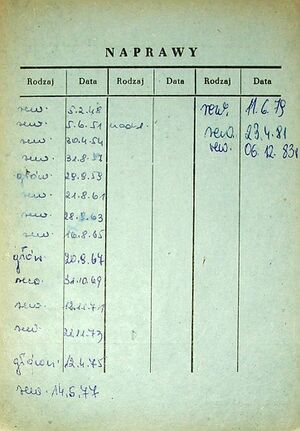 NAPRAWY
Rodzaj Data Rodzaj Data Rodzaj Data
rew. 5.2.48 rew. 11.6.79
rew. 5.6.51 rew. 23.4.81
rew. 30.4.54 rew. 06.12.83r
rew. 31.8.57
główn. 29.9.59
rew. 21.8.61
rew. 28.8.63
rew. 16.8.65
główn. 20.9.67
rew. 31.10.69
rew. 12.11.71
rew. 22.11.73
główn. 12.4.75
rew. 14.6.77